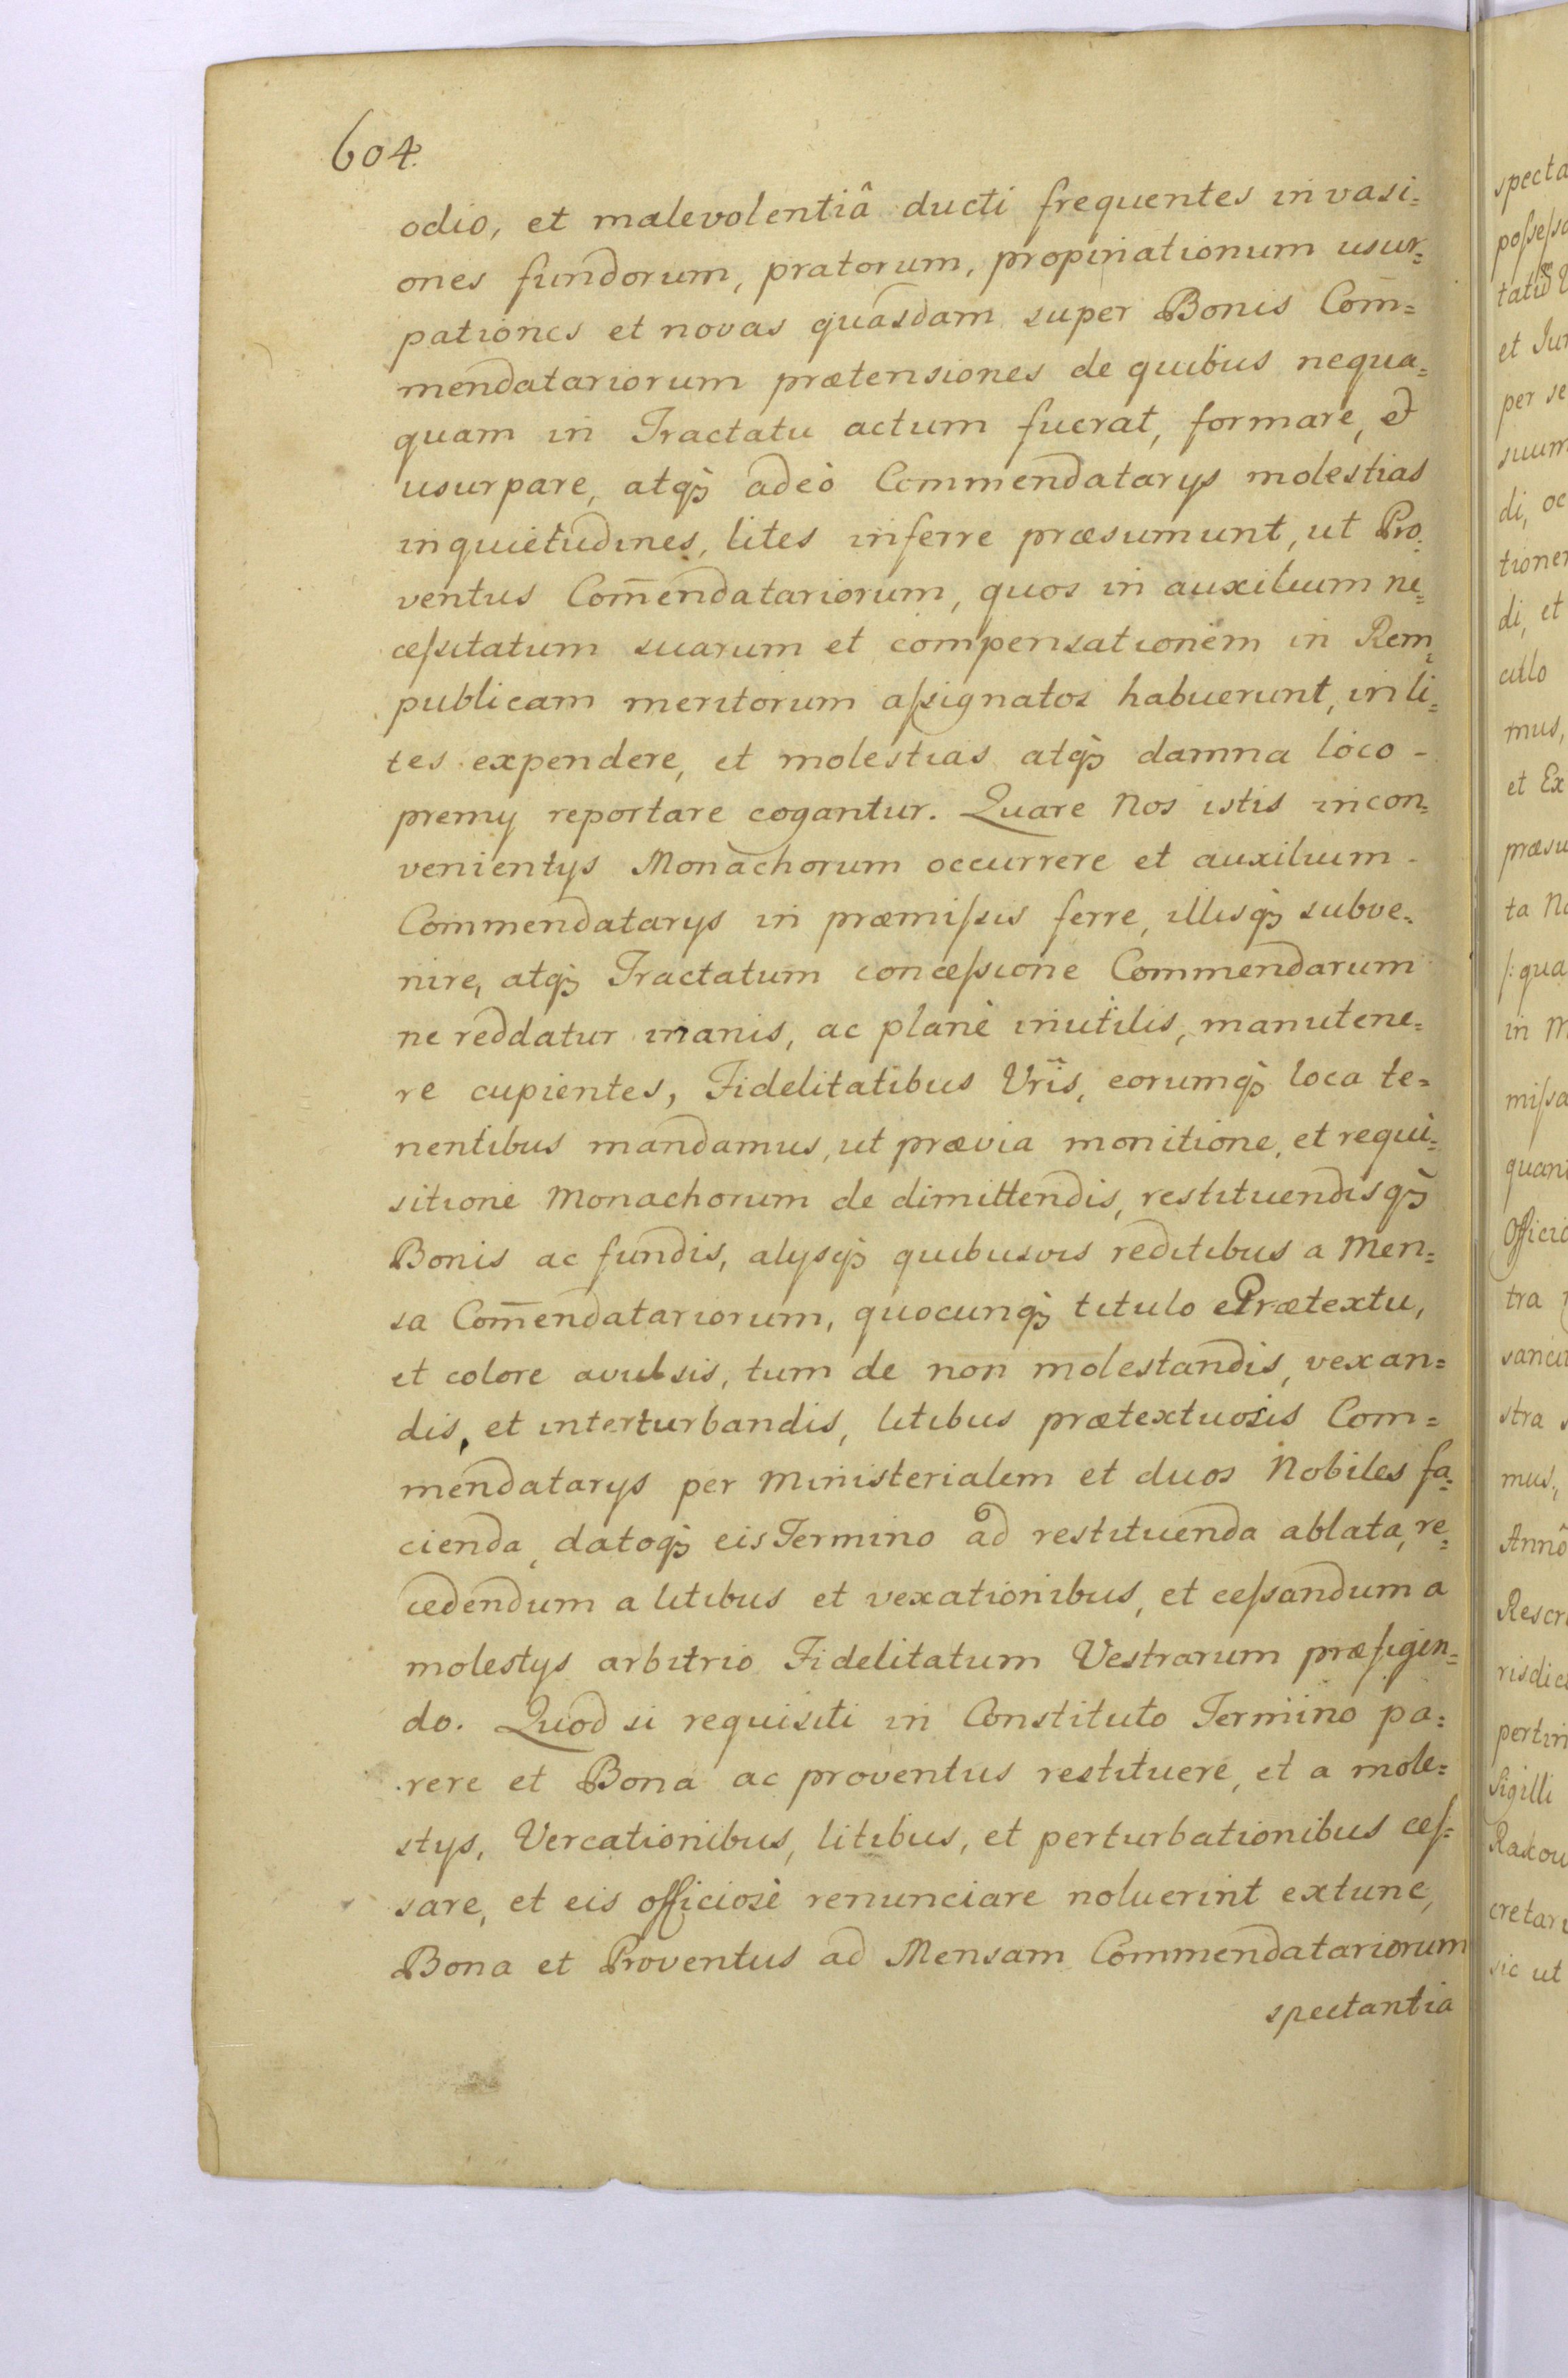 604.
odio, et malevolentiâ ducti frequentes invasi=
ones fundorum, pratorum, propinationum usur=
pationes et novas quasdam super Bonis Com̄=
mendatariorum prætensiones de quibus nequa=
quam in Tractatu actum fuerat, formare, et
usurpare, atqꝫ adeò Commendatarys molestias
inquietudines, lites inferre præsumunt, ut Pro=
ventus Com̄endatariorum, quos in auxilium ne=
ceſsitatum suarum et compensationem in Rem=
publicam meritorum aſsignatos habuerunt, in li=
tes expendere, et molestias atqꝫ damna loco -
premy reportare cogantur. Quare Nos istis incon=
venientys Monachorum occurrere et auxilium -
Commendatarys in præmiſsis ferre, illisqꝫ subve=
nire, atqꝫ Tractatum conceſsione Commendarum
ne reddatur inanis, ac planè inutilis, manutene=
re cupientes, Fidelitatibus Vr̃is, eorumqꝫ loca te=
nentibus mandamus, ut prævia monitione, et requi=
sitione Monachorum de dimittendis, restituendisqꝫ
Bonis ac fundis, alysqꝫ quibusvis reditibus a Men=
sa Com̄endatariorum, quocunqꝫ titulo ePrætextu,
et colore avulsis, tum de non molestandis, vexan=
dis, et interturbandis, litibus prætextuosis Com=
mendatarys per Ministerialem et duos Nobiles fa=
cienda, datoqꝫ eis Termino ad restituenda ablata, re=
cedendum a litibus et vexationibus, et ceſsandum a
molestys arbitrio Fidelitatum Vestrarum præfigen=
do. Quod si requisiti in Constituto Termino pa=
rere et Bona ac proventus restituere, et a mole=
stys, Vercationibus, litibus, et perturbationibus ceſ=
sare, et eis officiosè renunciare noluerint extunc,
Bona et Proventus ad Mensam Commendatariorum
spectantia